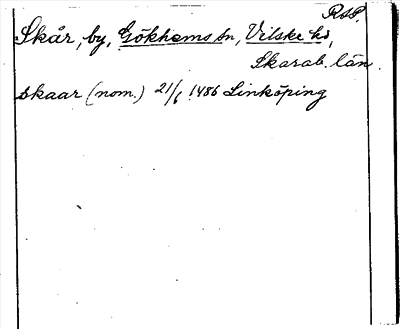 RAP.
Skår, by, Gökhems sn, Vilske hd,
Skarab. län.
skaar (nom.) 21/6 1486 Linköping